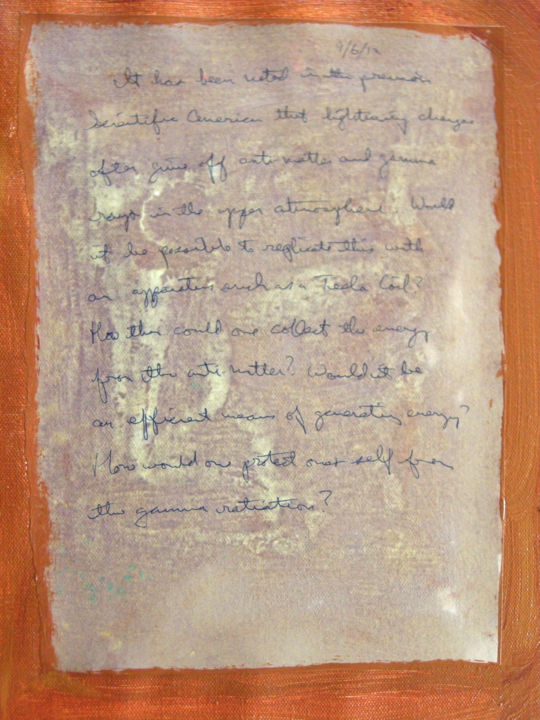 9/6/12
It has been noted in the previous
Scientific American that lightening charges
often give off anti matter and gamma
rays in the upper atmosphere. Would
it be possible to replicate this with
an apparatus such as a Tesla Coil?
How then could one collect the energy
from the anti-matter? Would it be
an efficient means of generating energy?
How would one protect ones self from
the gamma ratiation?